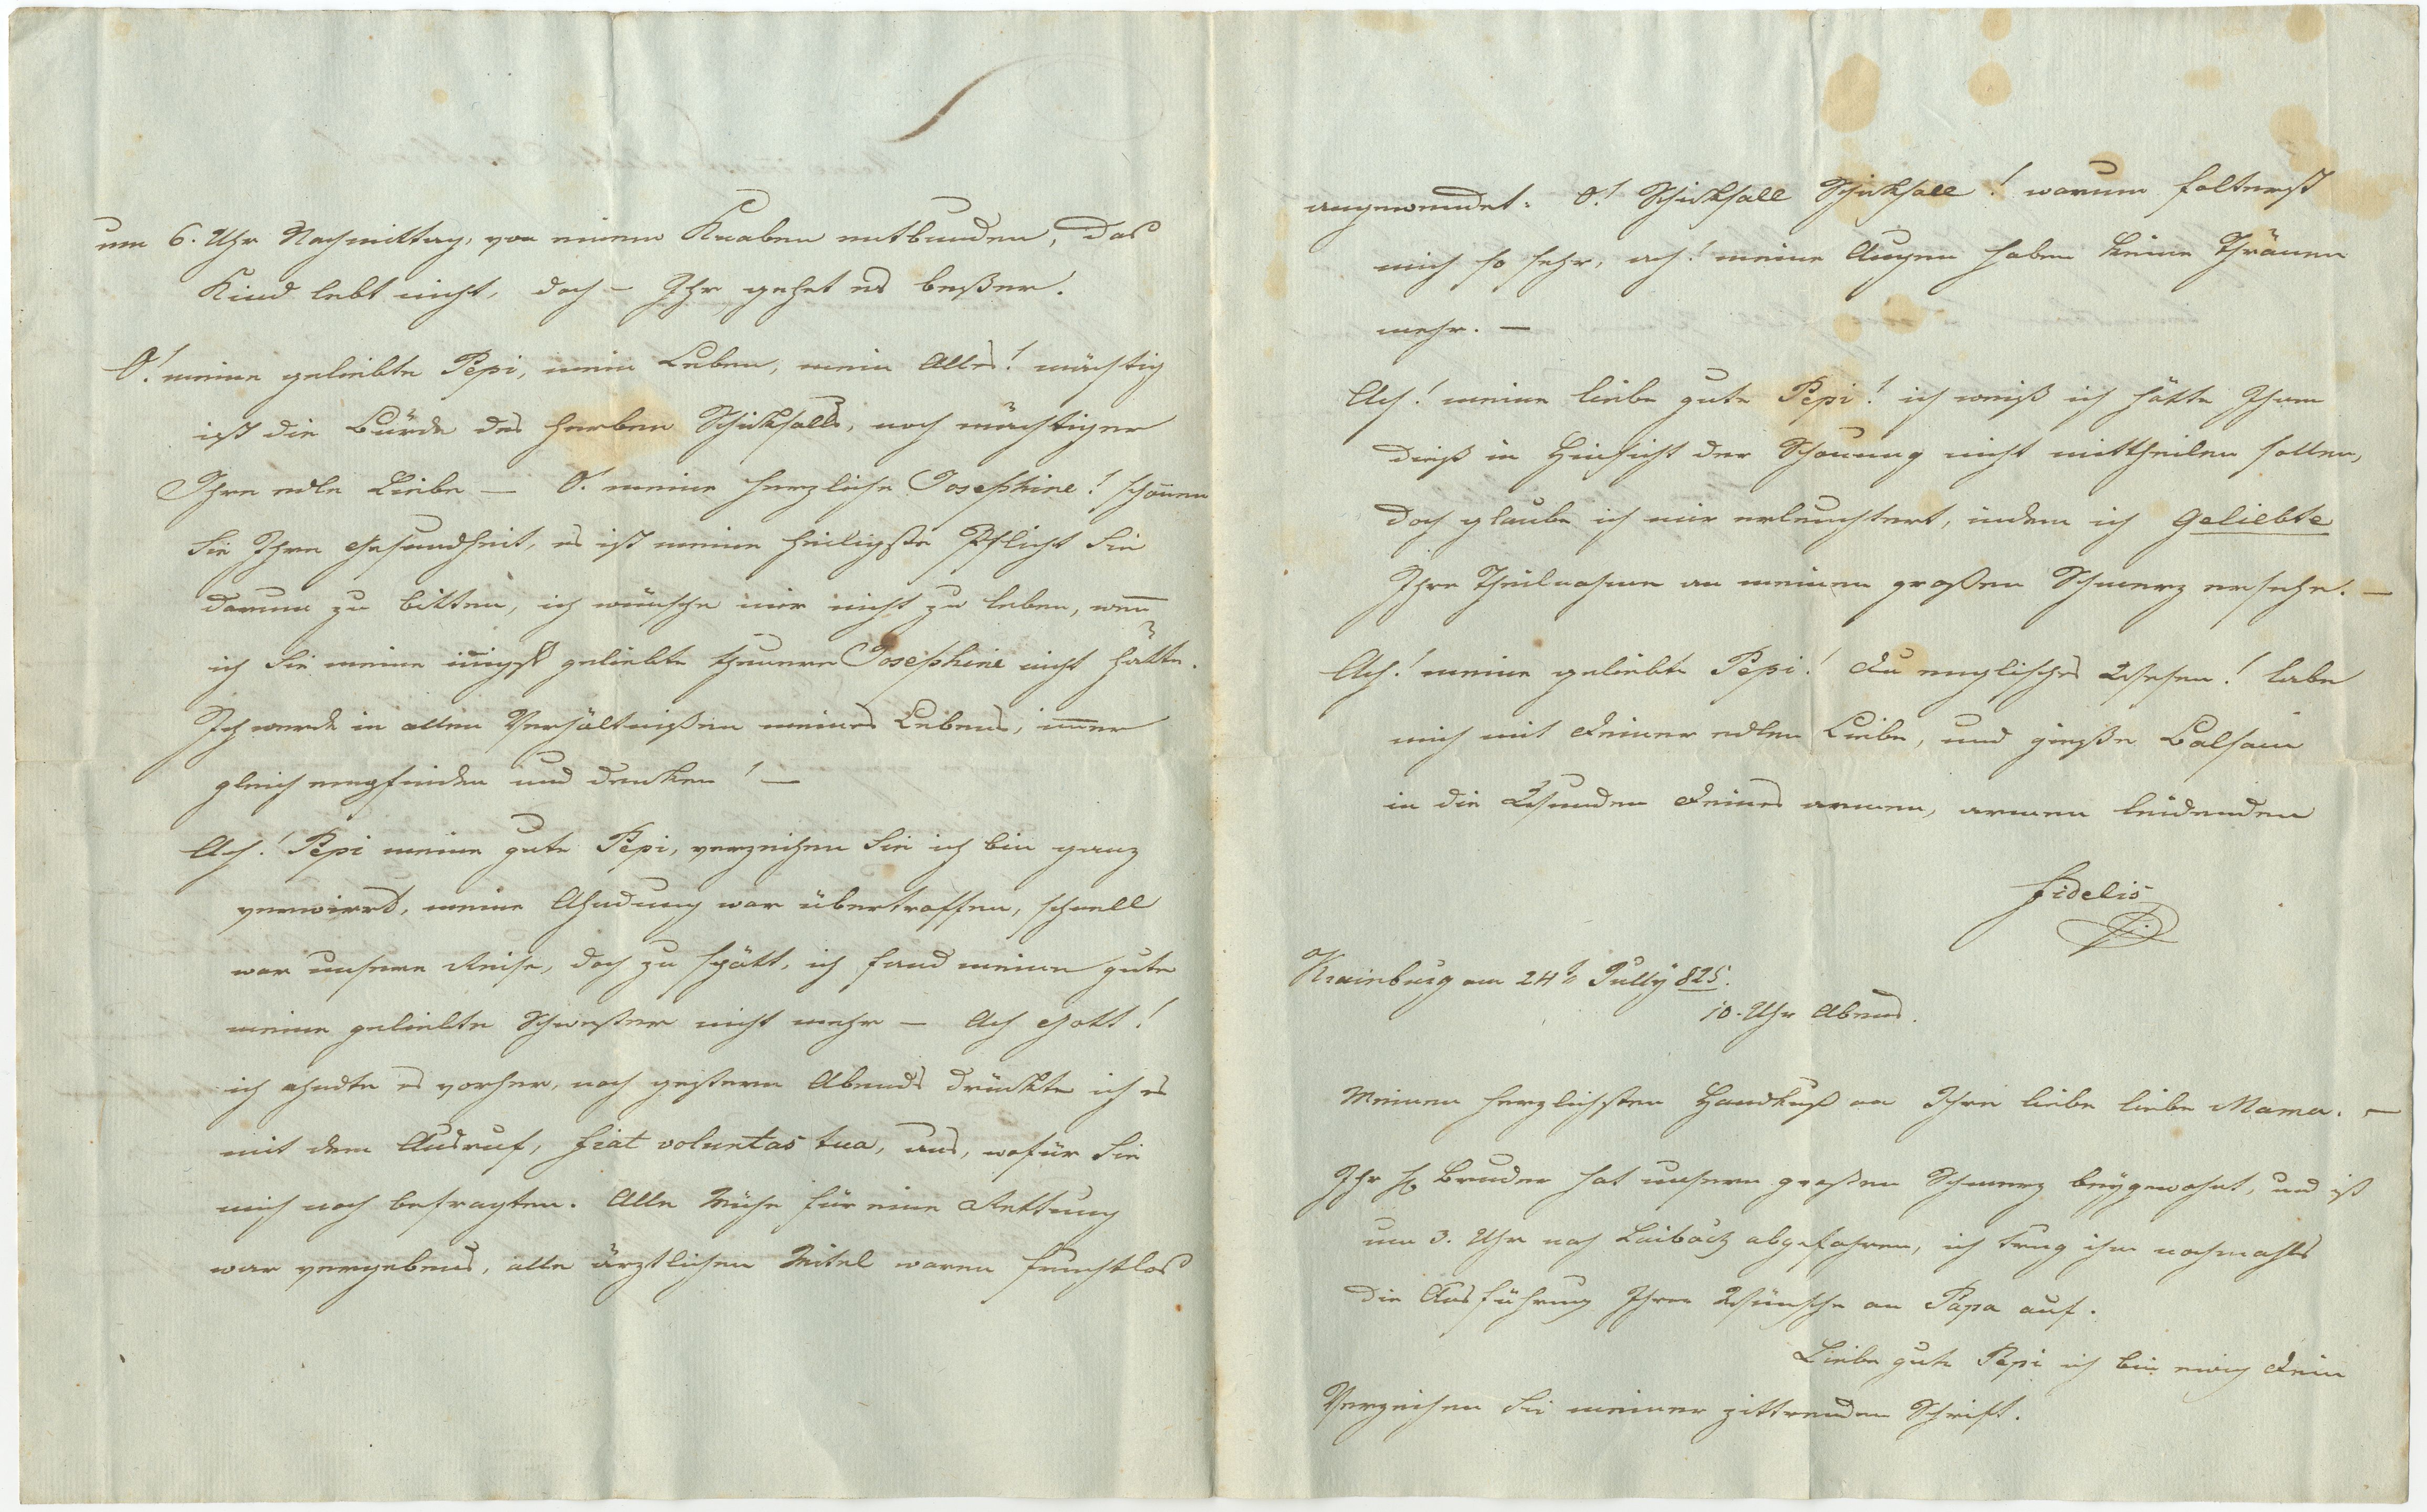 um 6. Uhr Nachmittag, von einem Knaben entbunden, das
Kind lebt nicht, doch – Ihr gehet es beßer.
O! meine geliebte Pepi, mein Leben, mein Alles! mächtig
ist die Bürde des herben Schicksalls, noch mächtiger
Ihre edle Liebe – O! meine herzliche Josephine! schonen
Sie Ihre Gesundheit, es ist meine heiligste Pflicht Sie
darum zu bitten, ich wünsche mir nicht zu leben, wenn
ich Sie meine innigst geliebte theuere Josephine nicht hätte.
Ich werde in allen Verhältnißen meines Lebens, immer
gleich empfinden und denken! –
Ach! Pepi meine gute Pepi, verzeihen Sie ich bin ganz
verwirrt, meine Ahndung war übertroffen, schnell
war unsere Reise, doch zu spätt, ich fand meine gute
meine geliebte Schwester nicht mehr – Ach Gott!
ich ahndte es vorher, noch gestern Abends drückte ich es
mit dem Ausruf, fiat voluntas tua, aus, wofür Sie
mich noch befragten. Alle Mühe für eine Rettung
war vergebens, alle ärztlichen Mitel waren fruchtlos
angewendet. O! Schicksall Schicksall! warum folterst
mich so sehr, ach! meine Augen haben keine Thränen
mehr. –
Ach! meine liebe gute Pepi! ich weiß ich hätte Ihnen
dieß in Hinsicht der Schonung nicht mittheilen sollen,
doch glaube ich mir erleuchtert, indem ich Geliebte
Ihre Theilnahme an meinem großen Schmerz ersehe. –
Ach! meine geliebte Pepi! Du englisches Wesen! labe
mich mit Deiner edlen Liebe, und gieße Balsam
in die Wunden Deines armen, armen leidenden
Fidelis
Krainburg am 24t Jully 825.
10. Uhr Abends.
Meinen herzlichsten Handkuß an Ihre liebe liebe Mama. –
Ihr H. Bruder hat unsern großen Schmerz beygewohnt, und ist
um 3. Uhr nach Laibach abgefahren, ich trug ihm nochmahls
die Ausführung Ihrer Wünsche an Papa auf.
Liebe gute Pepi ich bin ewig Dein
Verzeihen Sie meiner zittrenden Schrift.